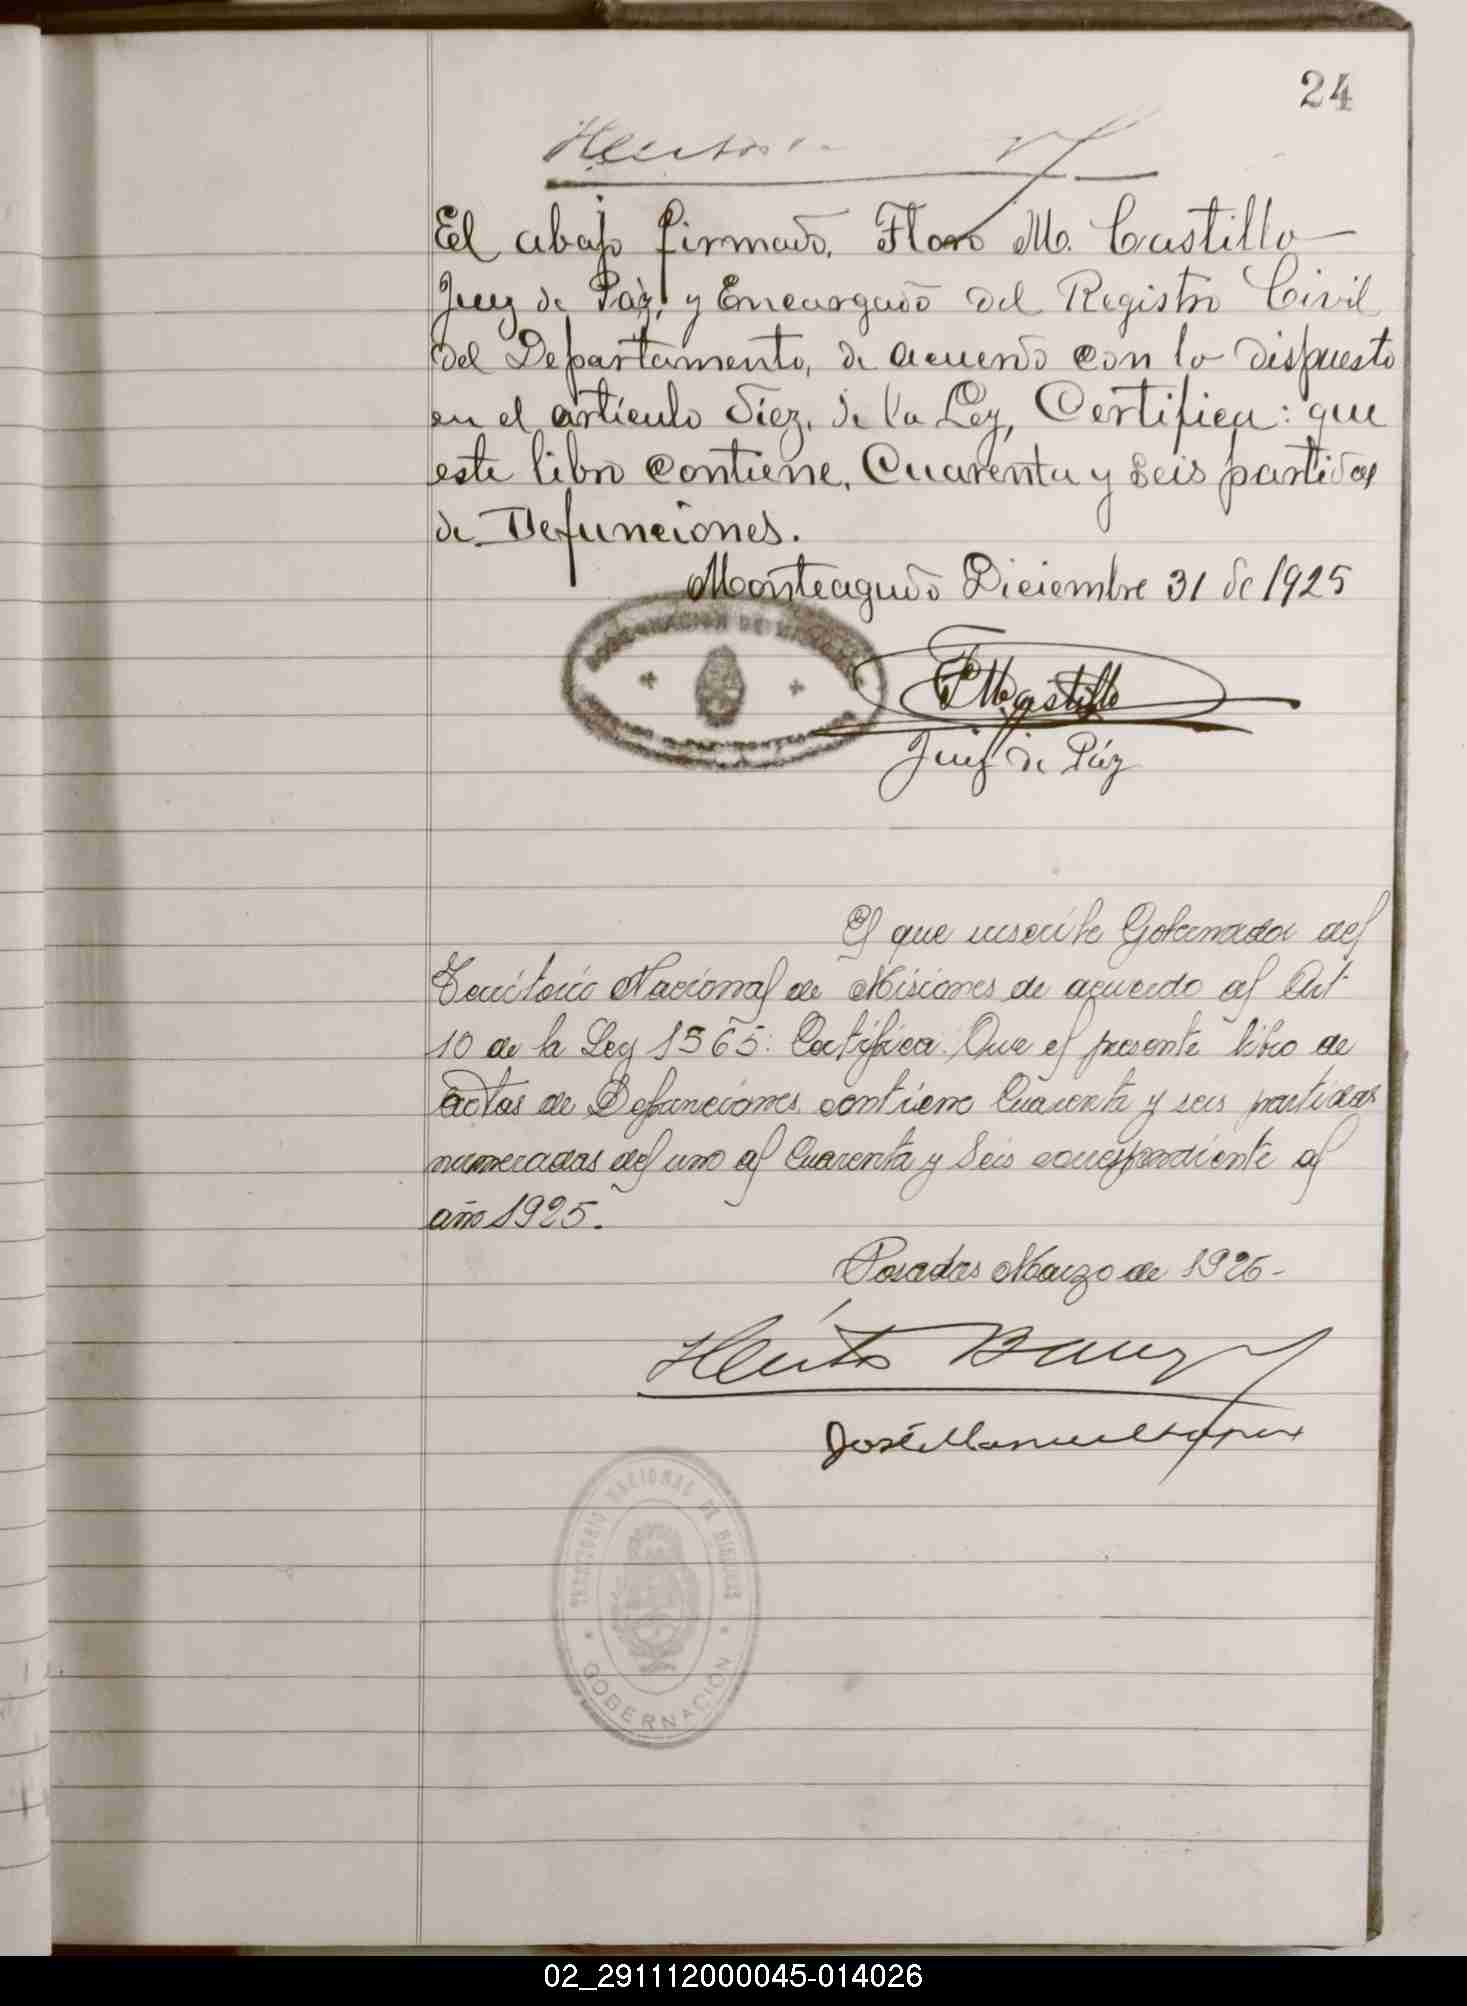 24
El abajo firmado, Floro M. Castillo
Juez de Paz, y Encargado del Registro Civil
del Departamento, de acuerdo con lo dispuesto
en el artículo diez, de la Ley, Certifica: que
este libro contiene, Cuarenta y seis partidas
de Defunciones.
Monteagudo Diciembre 31 de 1925
GOBERNACION DE MISIONES
F M Castillo
Juez de Páz
El que suscribe Gobernador del
Territorio Nacional de Misiones de acuerdo al Art
10 de la Ley 1565: Certifica: Que el presente libro de
actas de Defunciones contiene Cuarenta y seis partidas
numeradas del uno al Cuarenta y Seis correspondiente al
año 1925.
Posadas Marzo de 1926-
Héctor Barreyro
José Manuel
TERRITORIO NACIONAL DE MISIONES
GOBERNACIÓN
02_291112000045-014026